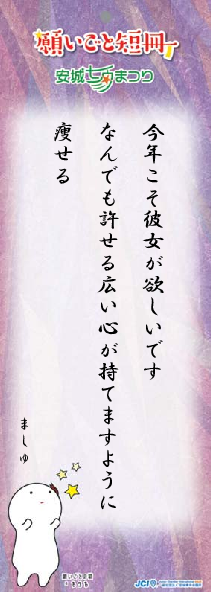 願いごと短冊
安城七夕まつり
今年こそ彼女が欲しいです
なんでも許せる広い心が持てますように
痩せる
ましゅ
JCI